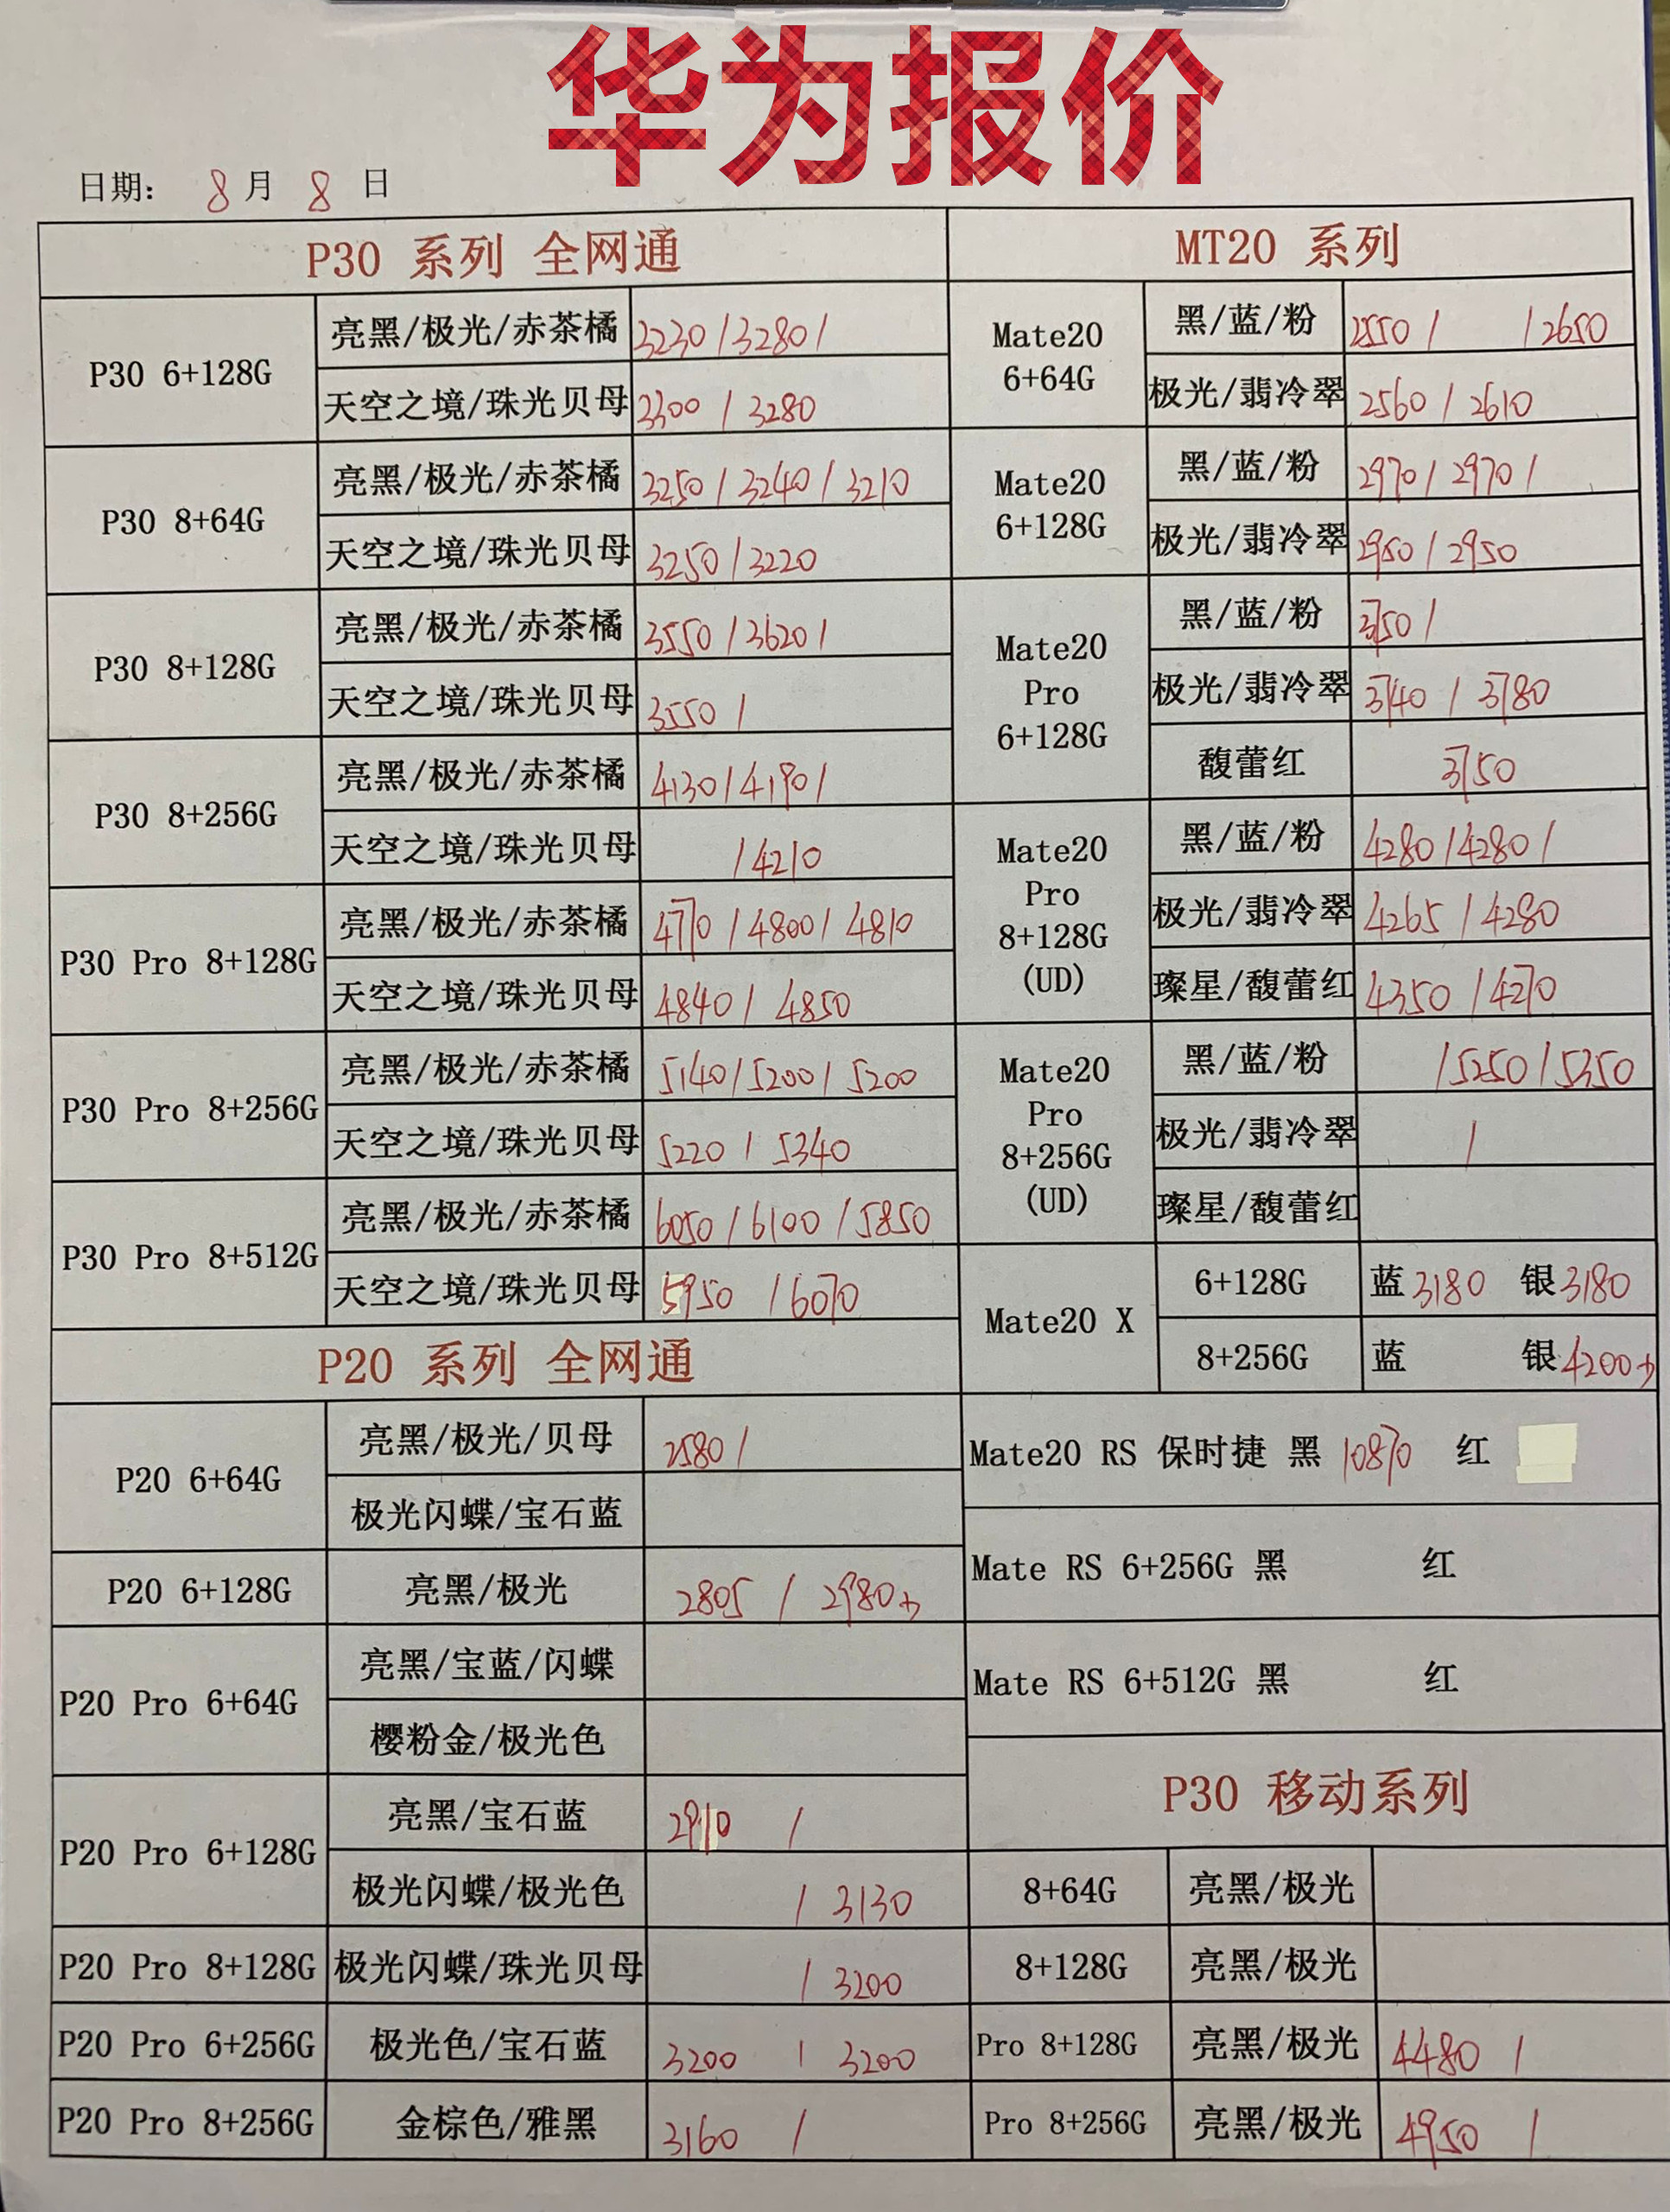 华为报价
日期: 8月 8日
P30 系列 全网通
P30 6+128G
亮黑/极光/赤茶橘 3230/3280/
天空之境/珠光贝母 3300/3280
P30 8+64G
亮黑/极光/赤茶橘 3250/3240/3210
天空之境/珠光贝母 3250/3220
P30 8+128G
亮黑/极光/赤茶橘 3550/3620/
天空之境/珠光贝母 3550/
P30 8+256G
亮黑/极光/赤茶橘 4130/4190/
天空之境/珠光贝母 /4210
P30 Pro 8+128G
亮黑/极光/赤茶橘 4770/4800/4810
天空之境/珠光贝母 4840/4850
P30 Pro 8+256G
亮黑/极光/赤茶橘 5140/5200/5200
天空之境/珠光贝母 5220/5340
P30 Pro 8+512G
亮黑/极光/赤茶橘 6050/6100/5850
天空之境/珠光贝母 5950/6070
P20 系列 全网通
P20 6+64G
亮黑/极光/贝母 2580/
极光闪蝶/宝石蓝
P20 6+128G
亮黑/极光 2805/2980
P20 Pro 6+64G
亮黑/宝蓝/闪蝶
樱粉金/极光色
P20 Pro 6+128G
亮黑/宝石蓝 2910 /
极光闪蝶/极光色 /3130
P20 Pro 8+128G
极光闪蝶/珠光贝母 /3200
P20 Pro 6+256G
极光色/宝石蓝 3200/3200
P20 Pro 8+256G
金棕色/雅黑 3160 /
MT20 系列
Mate20
6+64G
黑/蓝/粉 2550/ /2650
极光/翡冷翠 2560/2610
Mate20
6+128G
黑/蓝/粉 2970/2970/
极光/翡冷翠 2950/2950
Mate20
Pro
6+128G
黑/蓝/粉 3750/
极光/翡冷翠 3740/3780
馥蕾红 3750
Mate20
Pro
8+128G
(UD)
黑/蓝/粉 4280/4280/
极光/翡冷翠 4265/4280
璨星/馥蕾红 4350/4270
Mate20
Pro
8+256G
(UD)
黑/蓝/粉 /5250/5350
极光/翡冷翠 /
璨星/馥蕾红
Mate20 X
6+128G 蓝3180 银3180
8+256G 蓝 银4200
Mate20 RS 保时捷 黑 10870 红
Mate RS 6+256G 黑 红
Mate RS 6+512G 黑 红
P30 移动系列
8+64G 亮黑/极光
8+128G 亮黑/极光
Pro 8+128G 亮黑/极光 4480 /
Pro 8+256G 亮黑/极光 4950 /